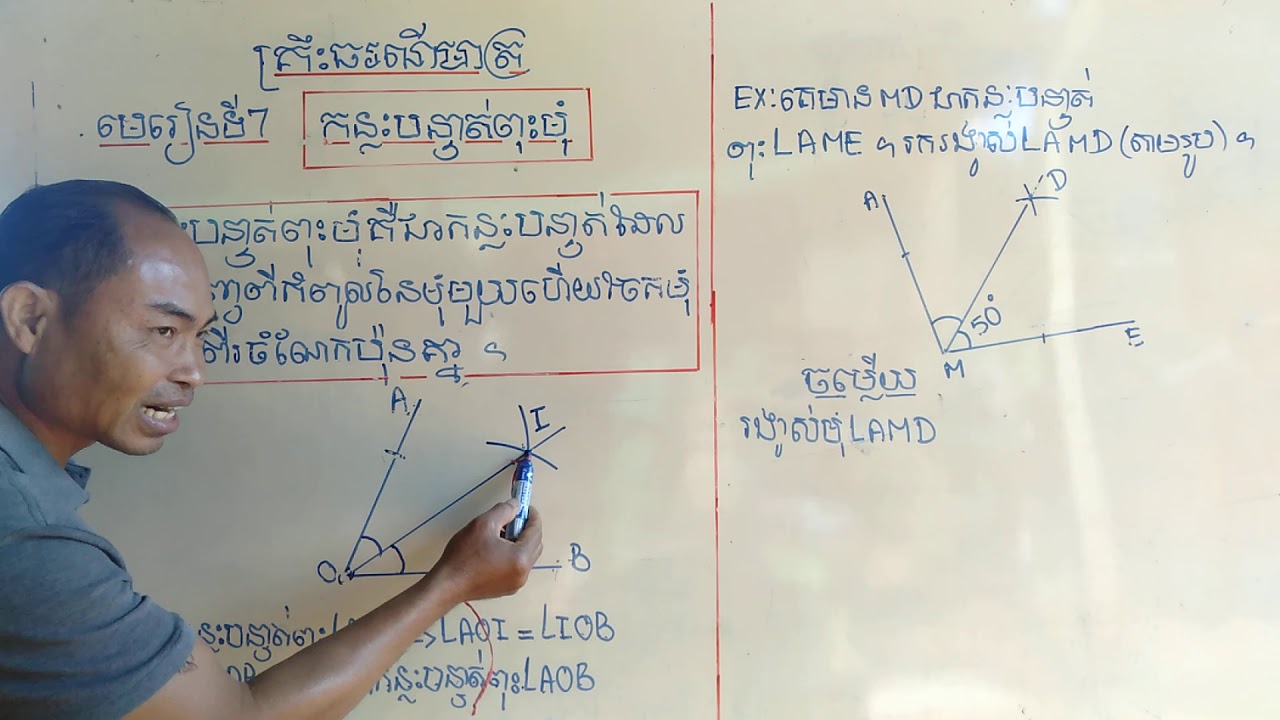 គ្រឹះធរណីមាត្រ
មេរៀនទី7 កន្លះបន្ទាត់ពុះមុំ
បន្ទាត់ពុះមុំគឺជាកន្លះបន្ទាត់ដែល
ពីកំពូលនៃមុំមួយហើយចែកមុំ
ចំណែកប៉ុនគ្នា ។
A
I
O
B
កន្លះបន្ទាត់ពុះ ∠AOI = ∠IOB
កន្លះបន្ទាត់ពុះ∠AOB
EX: គេមាន MD ជាកន្លះបន្ទាត់
ពុះ ∠AME ។ រករង្វាស់ ∠AMD (តាមរូប) ។
A
D
50°
E
M
ចម្លើយ
រង្វាស់មុំ ∠AMD